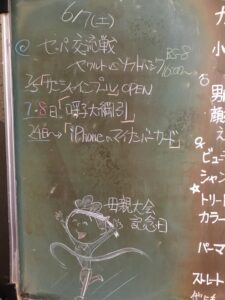 6/7(土)
セ・パ交流戦
ヤクルトvsソフトバンク
BS-8
OPEN
7-8日「呼子大綱引」
24日→「iPhoneのマイナンバーカード」
母親大会
記念日
カ
小
男
顔
え
ビュー
シャン
★トリート
カラー
パーマ
ストレート